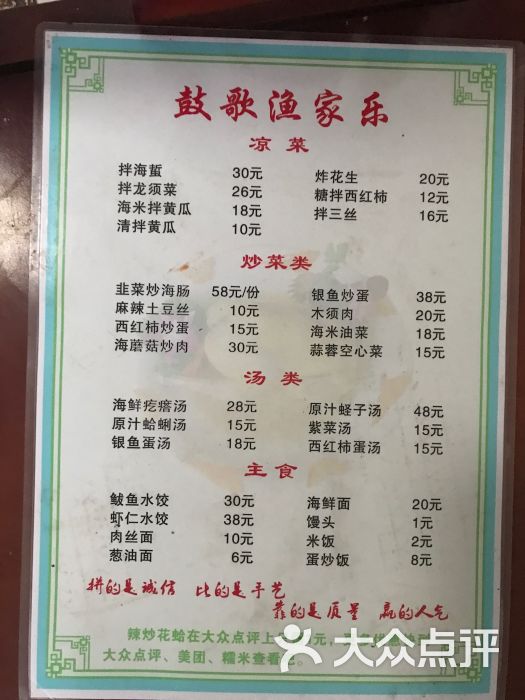 鼓歌渔家乐
凉菜
拌海蜇 30元 炸花生 20元
拌龙须菜 26元 糖拌西红柿 12元
海米拌黄瓜 18元 拌三丝 16元
清拌黄瓜 10元
炒菜类
韭菜炒海肠 58元/份 银鱼炒蛋 38元
麻辣土豆丝 10元 木须肉 20元
西红柿炒蛋 15元 海米油菜 18元
海蘑菇炒肉 30元 蒜蓉空心菜 15元
汤类
海鲜疙瘩汤 28元 原汁蛏子汤 48元
原汁蛤蜊汤 15元 紫菜汤 15元
银鱼蛋汤 18元 西红柿蛋汤 15元
主食
鲅鱼水饺 30元 海鲜面 20元
虾仁水饺 38元 馒头 1元
肉丝面 10元 米饭 2元
葱油面 6元 蛋炒饭 8元
拼的是诚信 比的是手艺
靠的是质量 赢的人气
辣炒花蛤在大众点评上 元,
大众点评、美团、糯米查看
大众点评